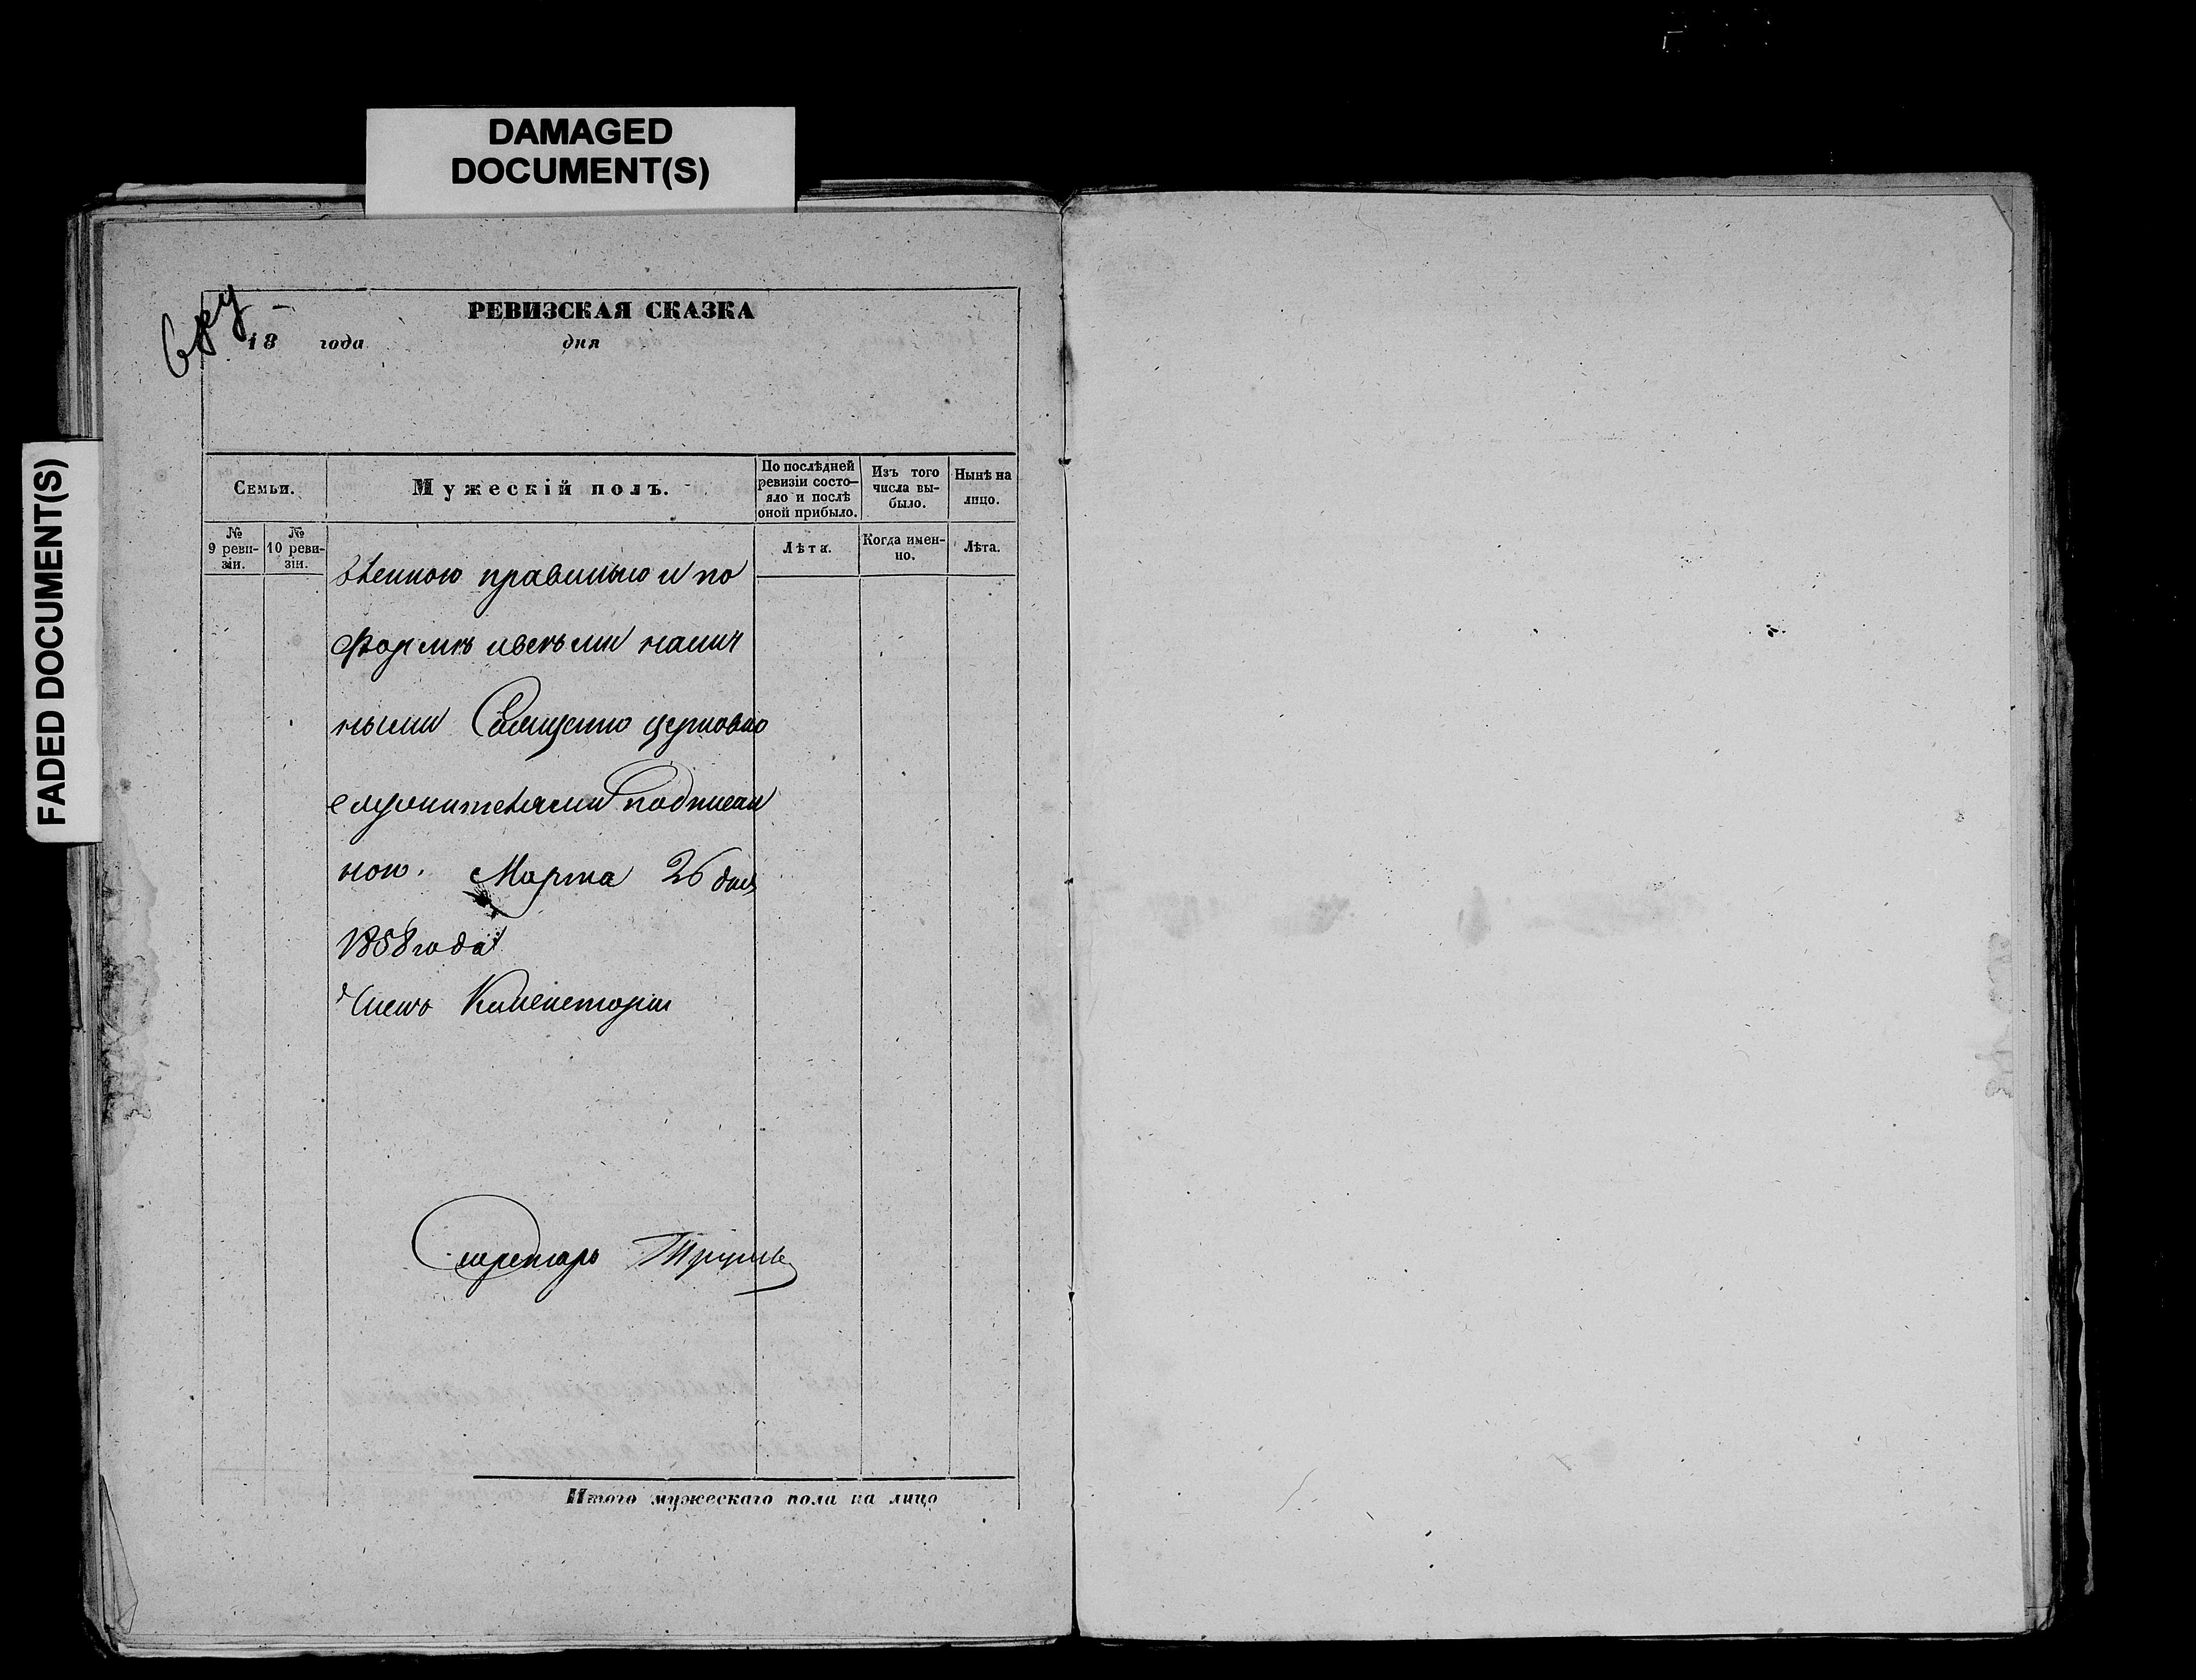 DAMAGED
DOCUMENT(S)
FADED DOCUMENT(S)
РЕВИЗСКАЯ СКАЗКА
18 года дня
Семьи.
Мужескій полъ.
По послѣдней
ревизіи состо-
яло и послѣ
оной прибыло.
Изъ того
числа вы-
было.
Нынѣ на
лицо.
№
9 реви-
зіи.
№
10 реви-
зіи.
Лѣта.
Когда имен-
но.
Лѣта.
вленною правильно и по
формѣ и всѣми налич
ными Священно церковно
служителями подписан
ною. Марта 26 дня
1858 года
Членъ Консисторіи
Секретарь
Итого мужескаго пола на лицо